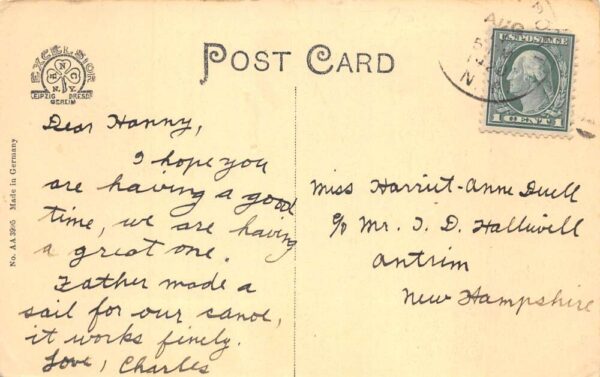 POST CARD
EXCELSIOR
N.Y.
LEIPZIG DRESD
BERLIN
No. AA 3905 Made in Germany
AUG
N
U.S. POSTAGE
1 CENT 1
Dear Hanny,
I hope you
are having a good
time, we are having
a great one.
Father made a
sail for our canoe,
it works finely.
Love, Charles
Miss Harriet-Anne Duell
c/o Mr. I. D. Halliwell
Antrim
New Hampshire